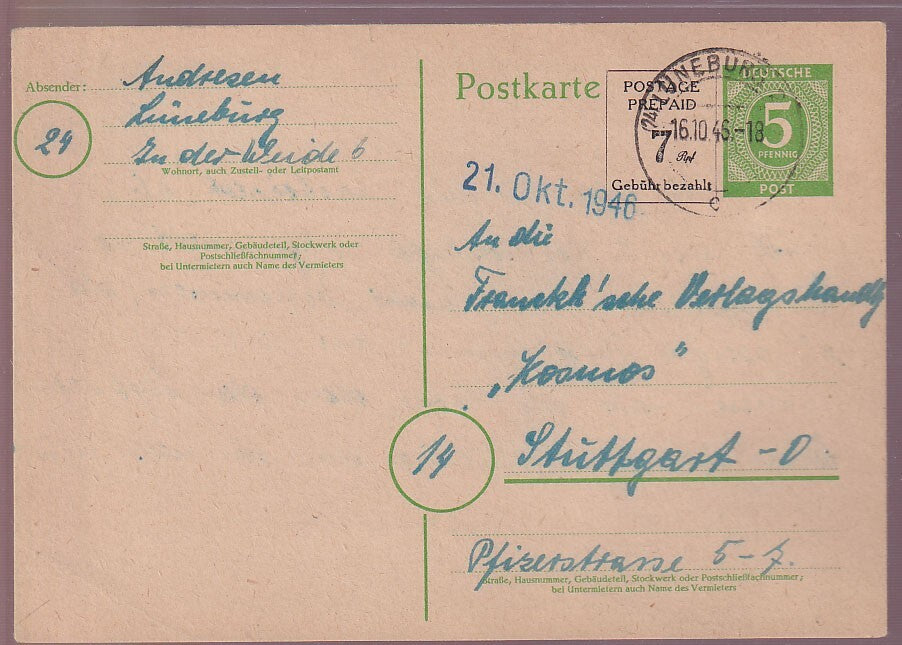 Absender:
Andresen
Lüneburg
24
In der Weide 6
Wohnort, auch Zustell- oder Leitpostamt
Straße, Hausnummer, Gebäudeteil, Stockwerk oder
Postschließfachnummer;
bei Untermietern auch Name des Vermieters
Postkarte
POSTAGE
PREPAID
7 Rpf
Gebühr bezahlt
24 LÜNEBURG
16.10.46.-18
c
DEUTSCHE
5
PFENNIG
POST
21. Okt. 1946
An die
Franckh'sche Verlagshandlg
„Kosmos"
14
Stuttgart - O
Pfizerstrasse 5-7.
Straße, Hausnummer, Gebäudeteil, Stockwerk oder Postschließfachnummer;
bei Untermietern auch Name des Vermieters